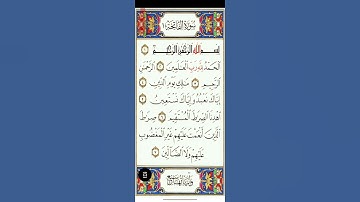 سورة الفاتحة
بسم الله الرحمن الرحيم ١
الحمد لله رب العالمين ٢ الرحمن
الرحيم ٣ ملك يوم الدين ٤
إياك نعبد وإياك نستعين ٥
اهدنا الصراط المستقيم ٦ صراط
الذين أنعمت عليهم غير المغضوب
عليهم ولا الضالين ٧